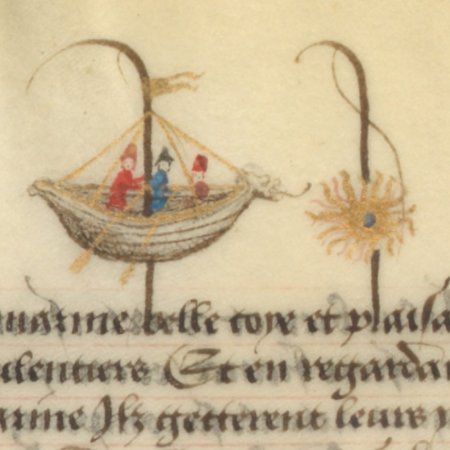 uarme belle coye et plaisa
dentiers Et en regarda
arme Ilz getterent leurs